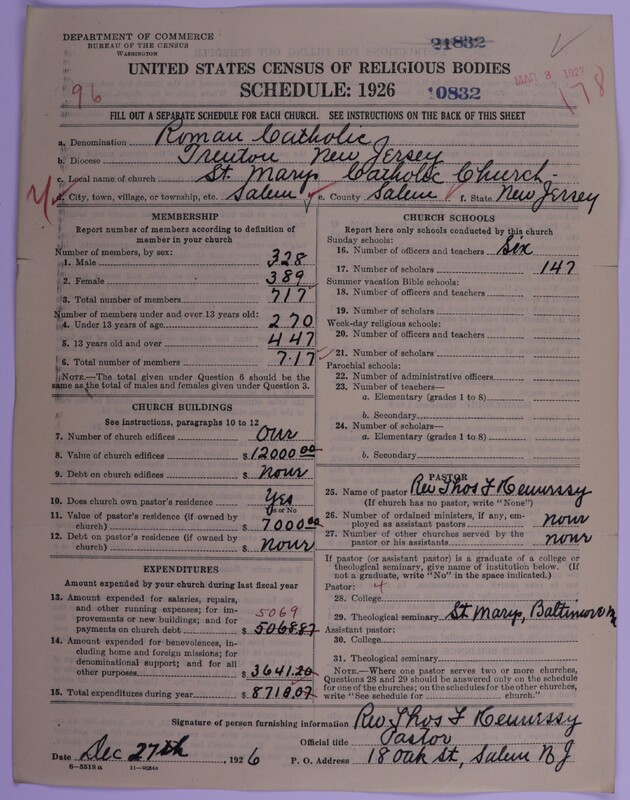 DEPARTMENT OF COMMERCE
BUREAU OF THE CENSUS
WASHINGTON
21832
MAR 3 1927
UNITED STATES CENSUS OF RELIGIOUS BODIES
96
SCHEDULE: 1926
10832
178
FILL OUT A SEPARATE SCHEDULE FOR EACH CHURCH. SEE INSTRUCTIONS ON THE BACK OF THIS SHEET
a. Denomination Roman Catholic
b. Diocese Trenton New Jersey
c. Local name of church St. Marys Catholic Church
d. City, town, village, or township, etc. Salem e. County Salem f. State New Jersey
MEMBERSHIP
Report number of members according to definition of
member in your church
Number of members, by sex:
1. Male 328
2. Female 389
3. Total number of members 717
Number of members under and over 13 years old:
4. Under 13 years of age 270
5. 13 years old and over 447
6. Total number of members 717
NOTE.—The total given under Question 6 should be the
same as the total of males and females given under Question 3.
CHURCH BUILDINGS
See instructions, paragraphs 10 to 12
7. Number of church edifices One
8. Value of church edifices $ 12000 00
9. Debt on church edifices $ None
10. Does church own pastor's residence Yes
Yes or No
11. Value of pastor's residence (if owned by
church) $ 7000 00
12. Debt on pastor's residence (if owned by
church) $ None
EXPENDITURES
Amount expended by your church during last fiscal year
13. Amount expended for salaries, repairs,
and other running expenses; for im-
provements or new buildings; and for
payments on church debt $ 5069
5068.87
14. Amount expended for benevolences, in-
cluding home and foreign missions; for
denominational support; and for all
other purposes $ 3641.20
15. Total expenditures during year $ 8710.07
CHURCH SCHOOLS
Report here only schools conducted by this church
Sunday schools:
16. Number of officers and teachers Six
17. Number of scholars 147
Summer vacation Bible schools:
18. Number of officers and teachers
19. Number of scholars
Week-day religious schools:
20. Number of officers and teachers
21. Number of scholars
Parochial schools:
22. Number of administrative officers
23. Number of teachers—
a. Elementary (grades 1 to 8)
b. Secondary
24. Number of scholars—
a. Elementary (grades 1 to 8)
b. Secondary
PASTOR
25. Name of pastor Rev Thos F Hennessy
(If church has no pastor, write "None")
26. Number of ordained ministers, if any, em-
ployed as assistant pastors none
27. Number of other churches served by the
pastor or his assistants none
If pastor (or assistant pastor) is a graduate of a college or
theological seminary, give name of institution below. (If
not a graduate, write "No" in the space indicated.)
Pastor: 4
28. College
29. Theological seminary St Marys, Baltimore Md
Assistant pastor:
30. College
31. Theological seminary
NOTE.—Where one pastor serves two or more churches,
Questions 28 and 29 should be answered only on the schedule
for one of the churches; on the schedules for the other churches,
write "See schedule for church."
Signature of person furnishing information Rev Thos F Hennessy
Official title Pastor
Date Dec 27th, 1926 P. O. Address 18 Oak St, Salem N J
8—5518 a